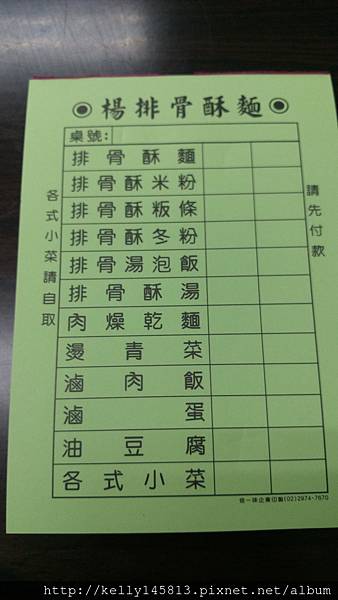 ◉楊排骨酥麵◉
桌號:
排骨酥麵
排骨酥米粉
排骨酥粄條
排骨酥冬粉
排骨湯泡飯
排骨酥湯
肉燥乾麵
燙青菜
滷肉飯
滷蛋
油豆腐
各式小菜
各式小菜請自取
請先付款
佶一咪企業印製(02)2974-7670
http://kelly145813.pixnet.net/album